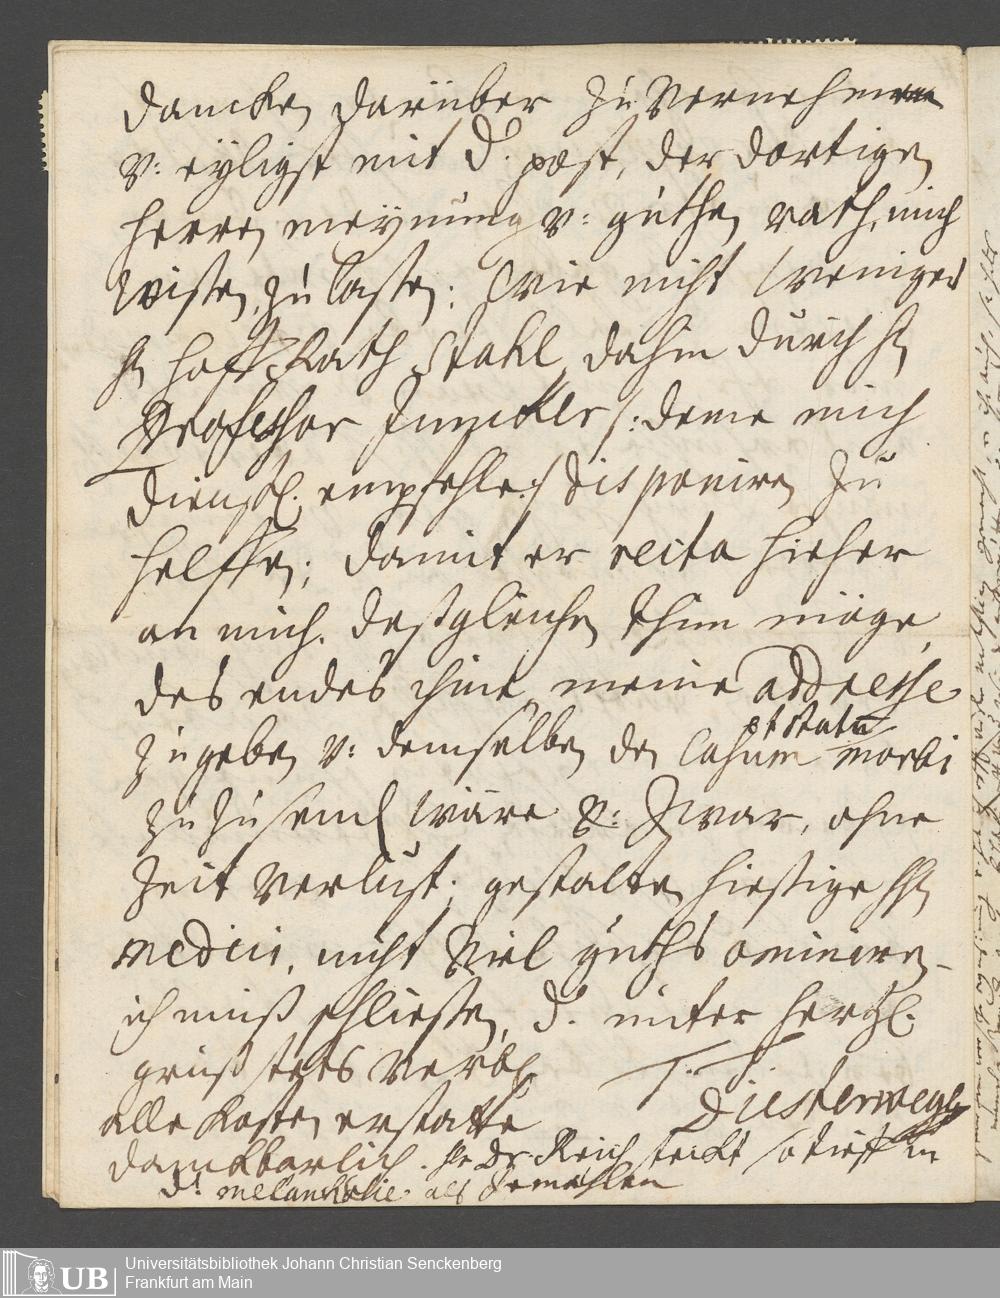 dancken darüber zu vernehmen
v: eyligst mit d. post, der dortigen
herren meynung v: guthen rath, mich
wissen zu lassen: Wie nicht weniger
H hoff Rath Stahl, dahin durch H
Professor Junckler /: deme mich
dienstl. empfehle :/ disponiren zu
helffen; damit er recta hieher
an mich. deßgleichen thun möge,
des endes ihme meine addresse
zugeben v: demselben den Casum et statu morbi
zu zu send wäre v: Zwar, ohne
Zeit Verlust; gestalten hiesige HH
medici, nicht Viel guths ominiren -
ich muß schliessen, d. unter hertzl.
gruß stets Verbl
T. T.
Diesterwege
alle kosten erstatte
danckbarlich. Dr Reich steckt so tieff in
d. melancholie als
Universitätsbibliothek Johann Christian Senckenberg
Frankfurt am Main
UB